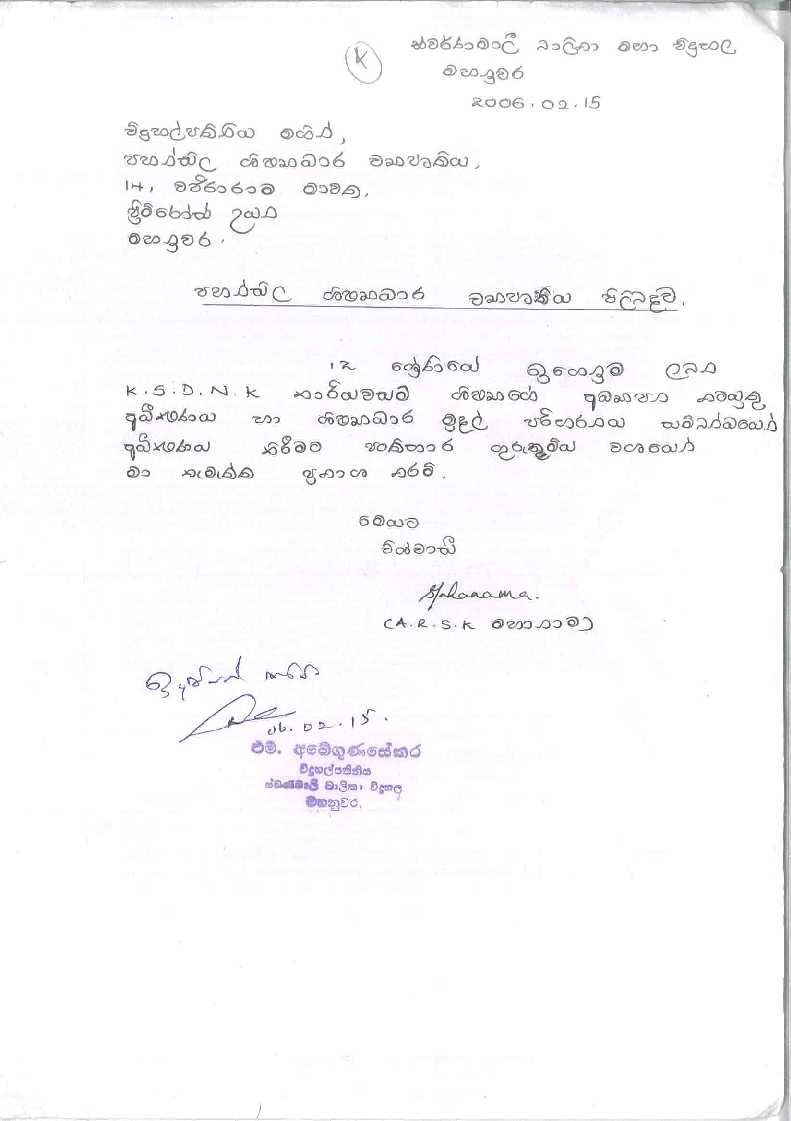 K
ස්වර්ණමාලී බාලිකා මහා විදුහල
මහනුවර
2006.02.15
විදුහල්පතිනිය මගින්,
පහන්සිල ශිෂ්‍යාධාර ව්‍යාපෘතිය,
14, වජිරාරාම මාවත,
ප්‍රිම්රෝස් උයන
මහනුවර.
පහන්සිල ශිෂ්‍යාධාර ව්‍යාපෘතිය පිළිබඳව.
12 ශ්‍රේණියේ ඉගෙනුම ලබන
K.S.D.N.K කාරියවසම් ශිෂ්‍යාගේ අධ්‍යාපන කටයුතු
අධීක්ෂණය හා ශිෂ්‍යාධාර මුදල් පරිහරනය සම්බන්ධයෙන්
අධීක්ෂණය කිරීමට පංතිභාර ගුරුතුමිය වශයෙන්
මා කැමැත්ත ප්‍රකාශ කරමි.
මෙයට
විශ්වාසී
(A.R.S.K මහානාම)
ඉදිරිපත් කරමි
06.02.15.
එම්. අබේගුණසේකර
විදුහල්පතිනිය
ස්වර්ණමාලී බාලිකා විදුහල
මහනුවර.